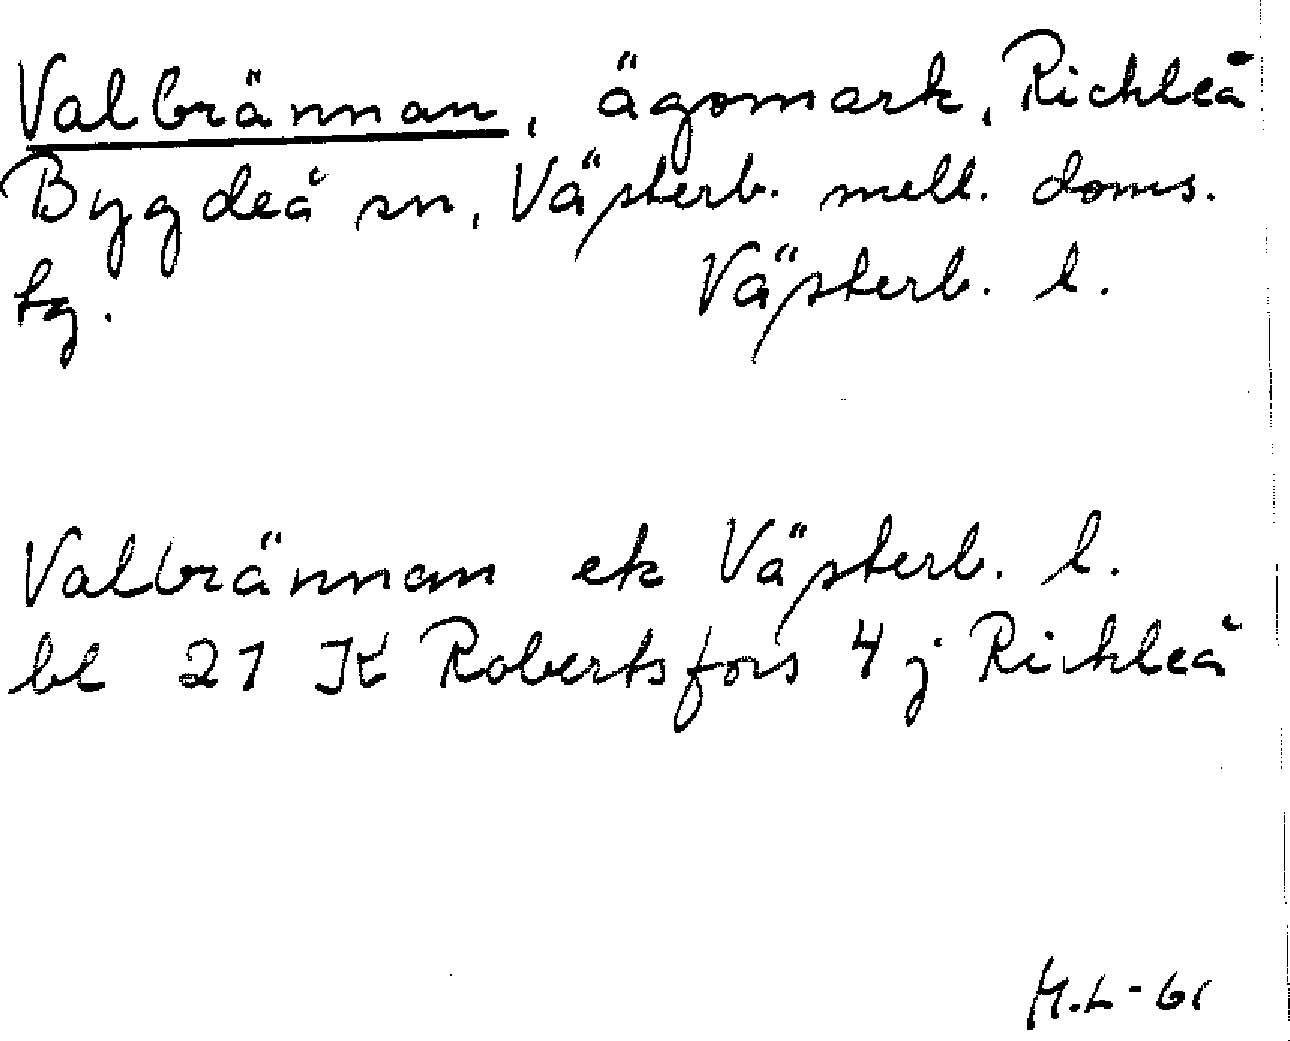 Valbrännan, ägomark, Richleå
Bygdeå sn, Västerb. mell. doms.
tg. Västerb. l.
Valbrännan ek Västerb. l.
bl 21 JK Robertsfors 4 j Richleå
M.L-61